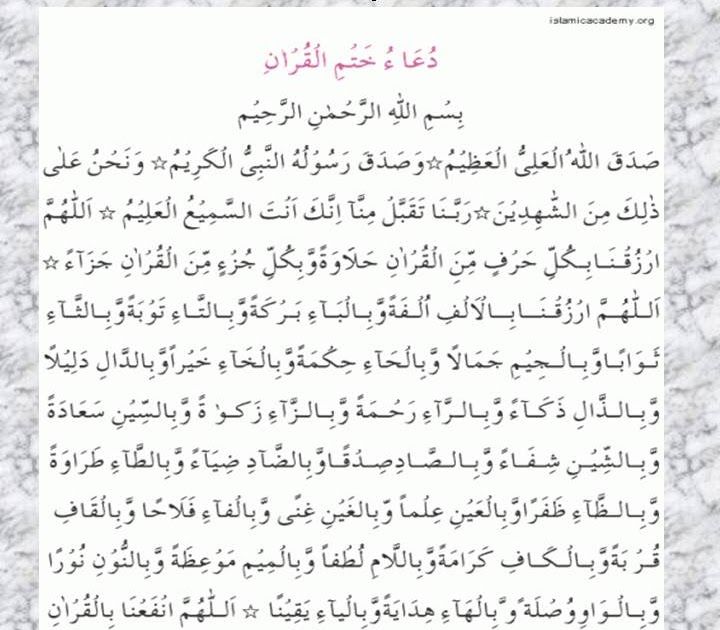 islamicacademy.org
دُعَاءُ خَتْمِ الْقُرْاٰنِ
بِسْمِ اللّٰهِ الرَّحْمٰنِ الرَّحِيْمِ
صَدَقَ اللّٰهُ الْعَلِىُّ الْعَظِيْمُ☆وَصَدَقَ رَسُوْلُهُ النَّبِىُّ الْكَرِيْمُ☆ وَنَحْنُ عَلٰى
ذٰلِكَ مِنَ الشّٰهِدِيْنَ☆رَبَّنَا تَقَبَّلْ مِنَّآ اِنَّكَ اَنْتَ السَّمِيْعُ الْعَلِيْمُ ☆ اَللّٰهُمَّ
ارْزُقْنَا بِكُلِّ حَرْفٍ مِّنَ الْقُرْاٰنِ حَلَاوَةً وَّبِكُلِّ جُزْءٍ مِّنَ الْقُرْاٰنِ جَزَآءً☆
اَللّٰهُمَّ ارْزُقْنَا بِالْاَلْفِ اُلْفَةً وَّبِالْبَآءِ بَرْكَةً وَّبِالتَّآءِ تَوْبَةً وَّبِالثَّآءِ
ثَوَابًا وَّبِالْجِيْمِ جَمَالًا وَّبِالْحَآءِ حِكْمَةً وَّبِالْخَآءِ خَيْراً وَّبِالدَّالِ دَلِيْلًا
وَّبِالذَّالِ ذَكَآءً وَّبِالرَّآءِ رَحْمَةً وَّبِالزَّآءِ زَكٰوةً وَّبِالسِّيْنِ سَعَادَةً
وَّبِالشِّيْنِ شِفَاءً وَّبِالصَّادِ صِدْقًا وَّبِالضَّآدِ ضِيَآءً وَّبِالطَّآءِ طَرَاوَةً
وَّبِالظَّآءِ ظَفَرًا وَّبِالْعَيْنِ عِلْماً وَّبِالْغَيْنِ غِنًى وَّبِالْفآءِ فَلَاحًا وَّبِالْقَافِ
قُرْبَةً وَّبِالْكَافِ كَرَامَةً وَّبِاللَّامِ لُطْفاً وَّبِالْمِيْمِ مَوْعِظَةً وَّبِالنُّوْنِ نُوْرًا
وَّبِالْوَاوِ وُصْلَةً وَّبِالْهَآءِ هِدَايَةً وَّبِالْيآءِ يَقِيْنًا ☆ اَللّٰهُمَّ انْفَعْنَا بِالْقُرْاٰنِ